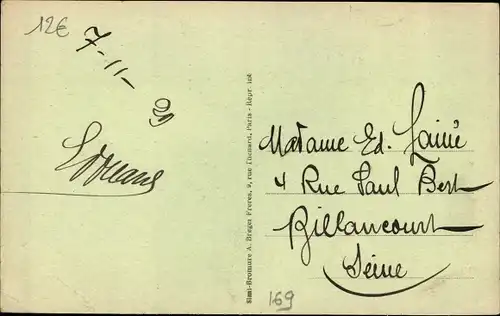 12€
7-11-29
Madame Ed. Lainé
4 Rue Paul Bert
Billancourt
Seine
Simi-Bromure A. Breger Frères, 9, rue Thénard, Paris - Repr. int
169